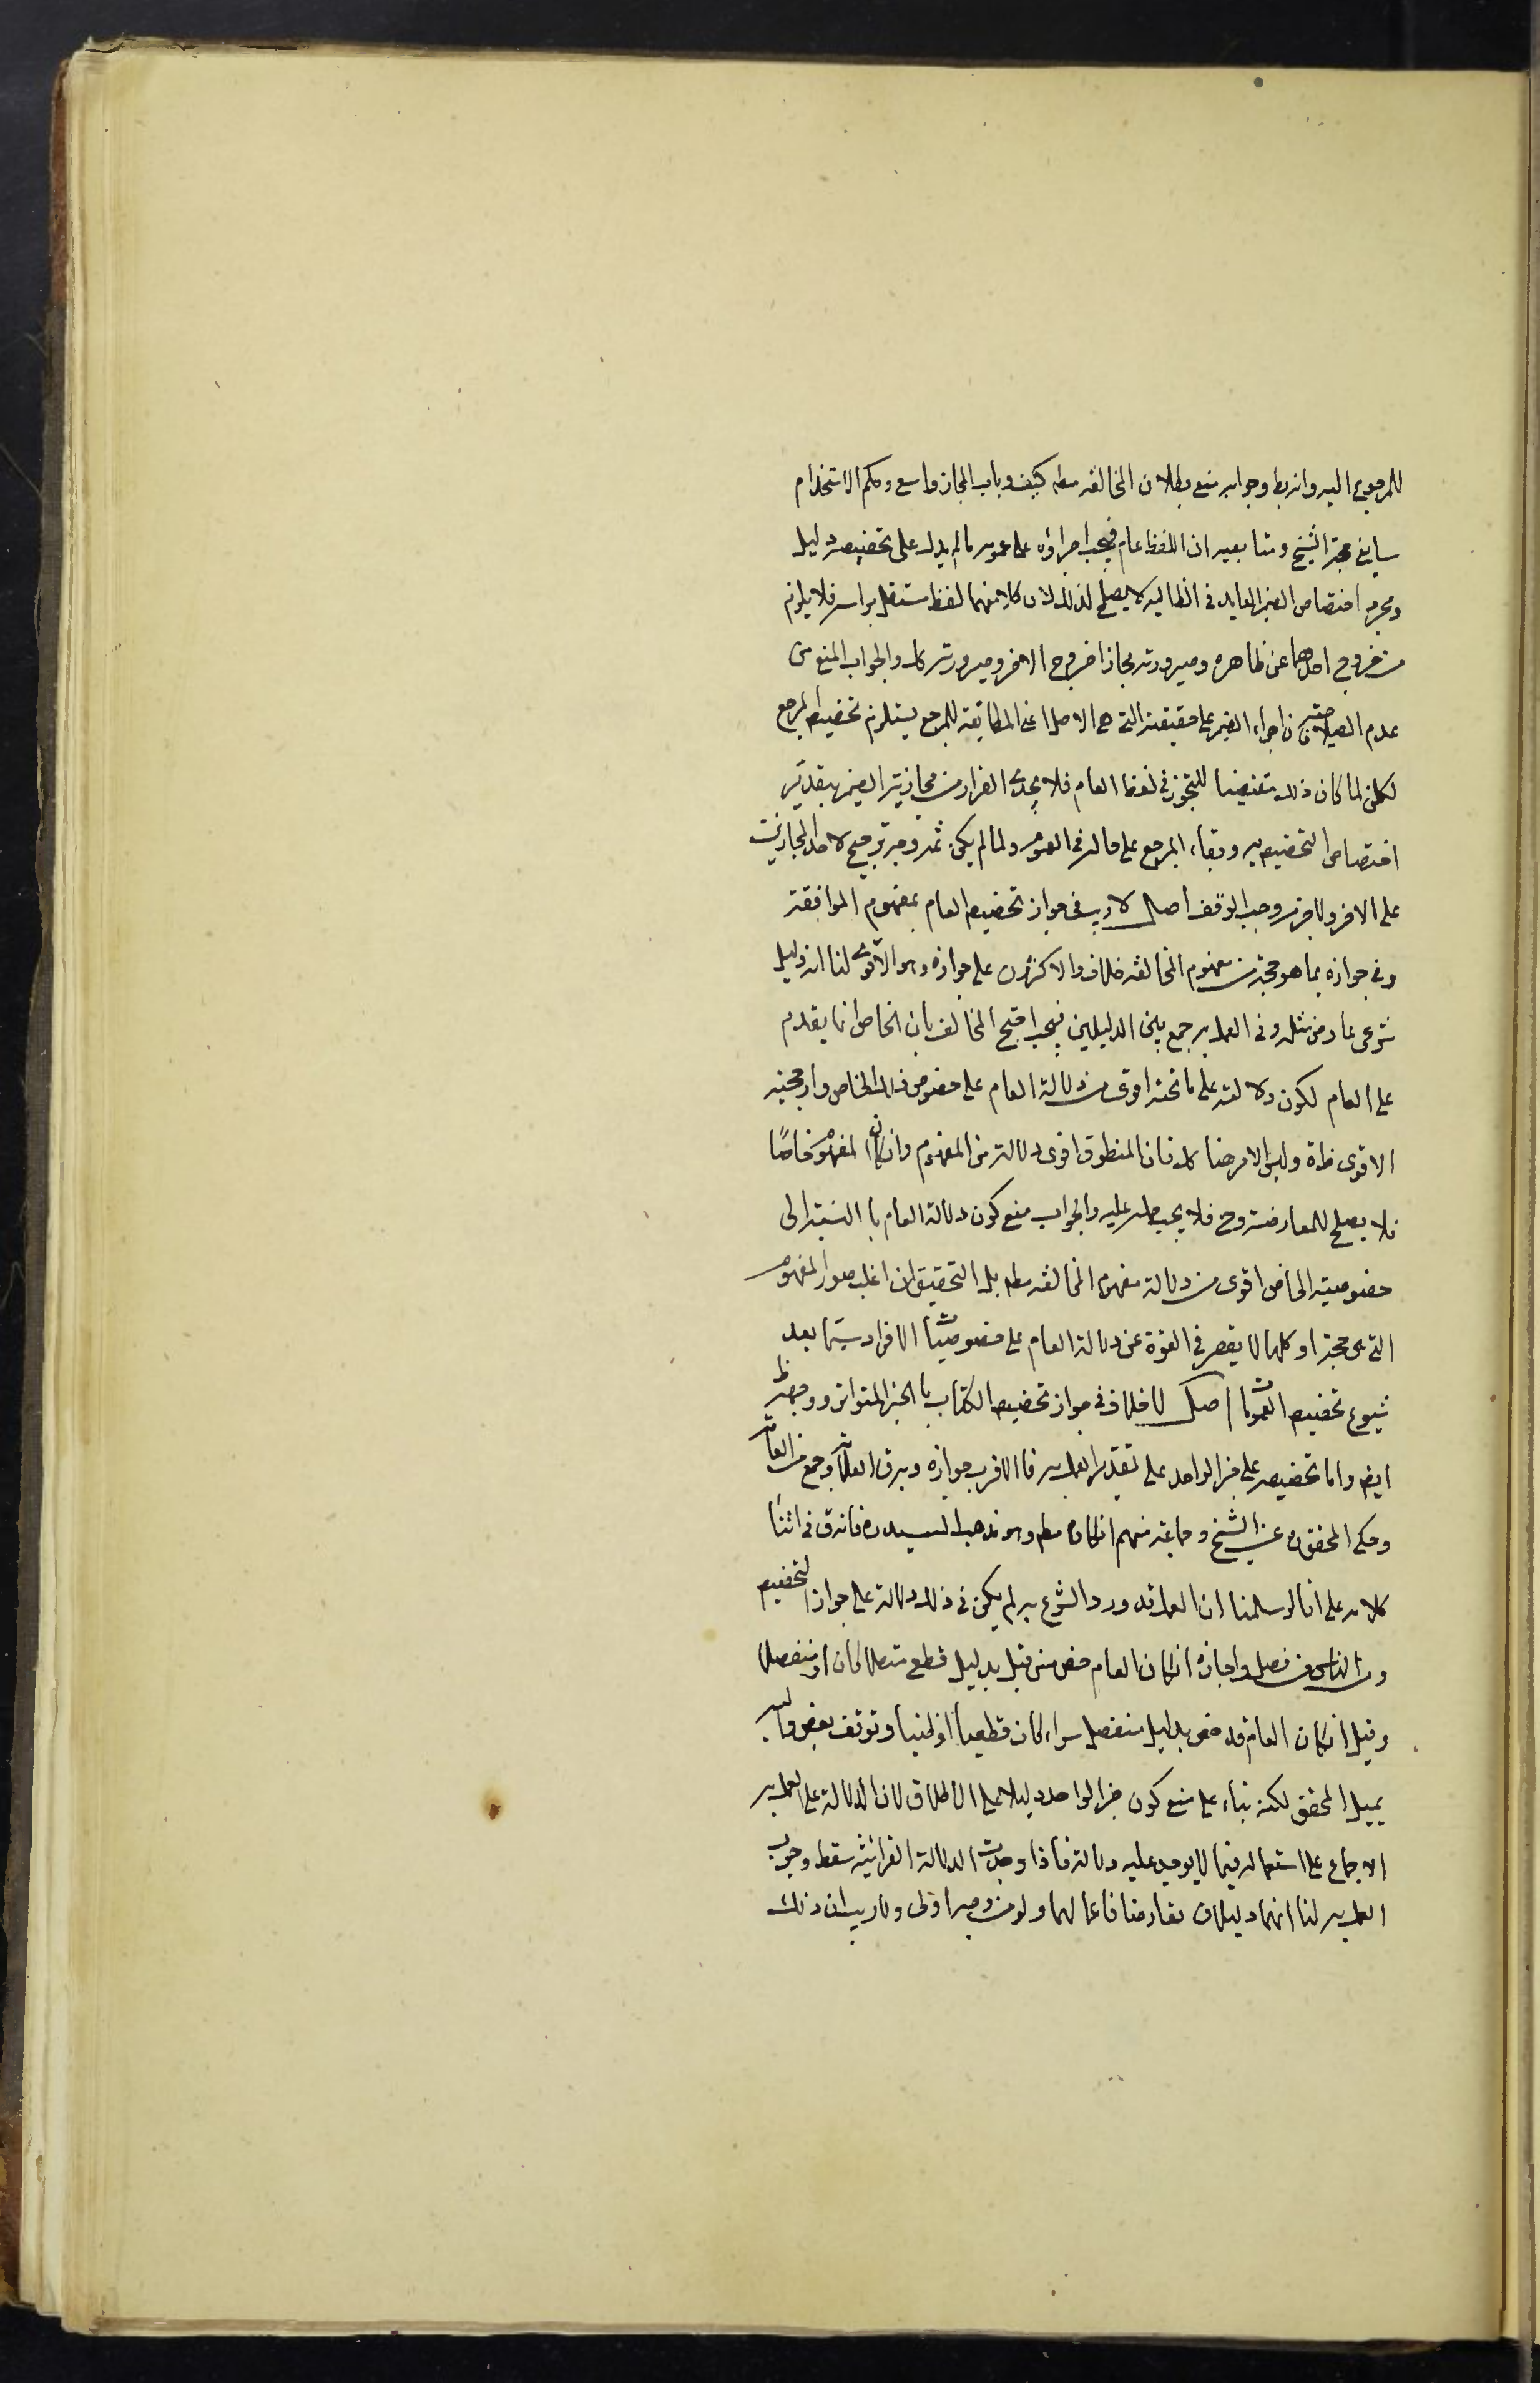 للمرجوع اليه وانه بط وجوابه منع بطلان المخالفه مطه كيف وباب المجاز واسع وحكم الاستخدام
سايغ حجة الشيخ ومتابعيه ان اللفظ عام فيجب اجراؤه على عمومه ما لم يدل على تخصيصه دليل
ومجرد اختصاص الضمير العايد في الظ اليه لا يصلح لذلك لان كلا منهما لفظ مستقل براسه فلا يلزم
من خروج احدهما عن ظاهره وصيرورته مجازا خروج الاخر وصيرورته كك والجواب المنع من
عدم الصلاحيه فان اجراء الضمير على حقيقته التي هي الاصل اعنى المطابقة للمرجع يستلزم تخصيص المرجع
لكن لما كان ذلك مقتضيا للتجوز في لفظ العام فلا يجدى الفرار من مجازية الضمير بتقدير
اختصاص التخصيص به وبقاء المرجع على حاله في العموم ولما لم يكن ثمه وجه ترجيح لاحد المجازين
على الاخر ولا جزم وجب الوقف اصل لا ريب في جواز تخصيص العام بمفهوم الموافقة
وفي جوازه بما هو حجة من مفهوم المخالفه خلاف والاكثرون على جوازه وهو الاقوى لنا انه دليل
شرعى عارض مثله وفي العمل به جمع بين الدليلين فيجب احتج المخالف بان الخاص انما يقدم
على العام لكون دلالته على ما تحته اقوى من دلالة العام على خصوص ذلك الخاص وارجحية
الاقوى ظاهرة وليس الامر هنا كك فان المنطوق اقوى دلالة من المفهوم وان كان المفهوم خاصًا
فلا يصلح للمعارضة وح فلا يجب حمله عليه والجواب منع كون دلالة العام با النسبة الى
خصوصية الخاص اقوى من دلالة مفهوم المخالفه مطه بل التحقيق ان اغلب صور المفهوم
التي هى حجة او كلها لا يقصر في القوة عن دلالة العام على خصوصيات الافراد سيّما بعد
شيوع تخصيص العمومات اصل لا خلاف في جواز تخصيص الكتاب با الخبر المتواتر ووجهه ظ
ايض واما تخصيصه على خبر الواحد على تقدير العمل به فا الاقرب جوازه وبه ق العلامة وجمع من العامة
وحكى المحقق ره عن الشيخ وجماعة منهم انكاره مطه وهو مذهب السيد ره فانه ق في اثناء
كلامه على انا لو سلمنا ان العمل قد ورد الشرع به لم يكن في ذلك دلالة على جواز التخصيص
ومن الناس من فصل واجازه ان كان العام خص من قبل بدليل قطع متصلا كان او منفصلا
وقيل ان كان العام قد خص بدليل منفصل سواء كان قطعيا او ظنيا وتوقف بعض واليه
يميل المحقق لكنه بناء على منع كون خبر الواحد دليلا على الاطلاق لان الدلالة على العمل به
الاجماع على استعماله فيما لا يوجد عليه دلالة فاذا وجدت الدلالة القرانيه سقط وجوب
العمل به لنا انهما دليلان تعارضا فاعمالهما ولو من وجه اولى ولا ريب ان ذلك